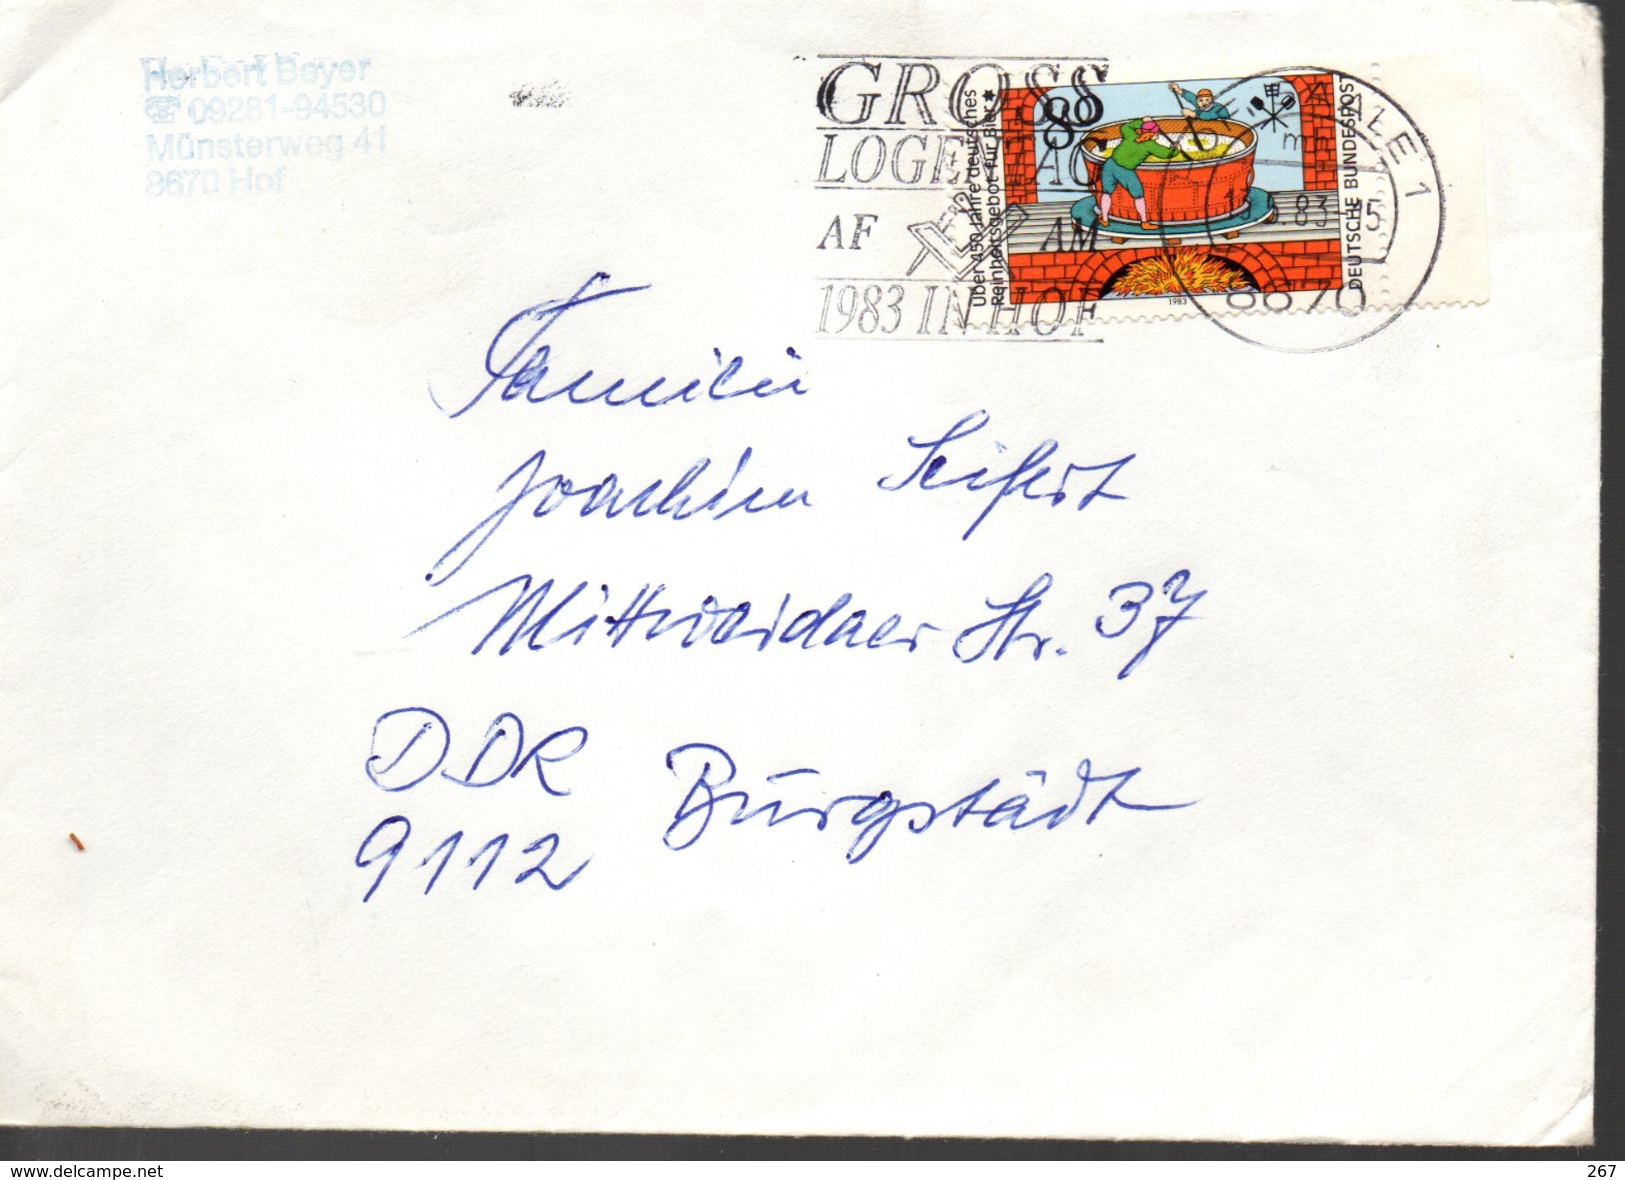 Herbert Beyer
☎ 09281-94530
Münsterweg 41
8670 Hof
GROSS
LOGENTAG
AF AM
1983 IN HOF
80
Über 450 Jahre deutsches
Reinheitsgebot für Bier
DEUTSCHE BUNDESPOST
1983
SAALE 1
.83-15
8670
Familie
Joachim Seifert
Mittweidaer Str. 37
DDR
9112 Burgstädt
www.delcampe.net
267